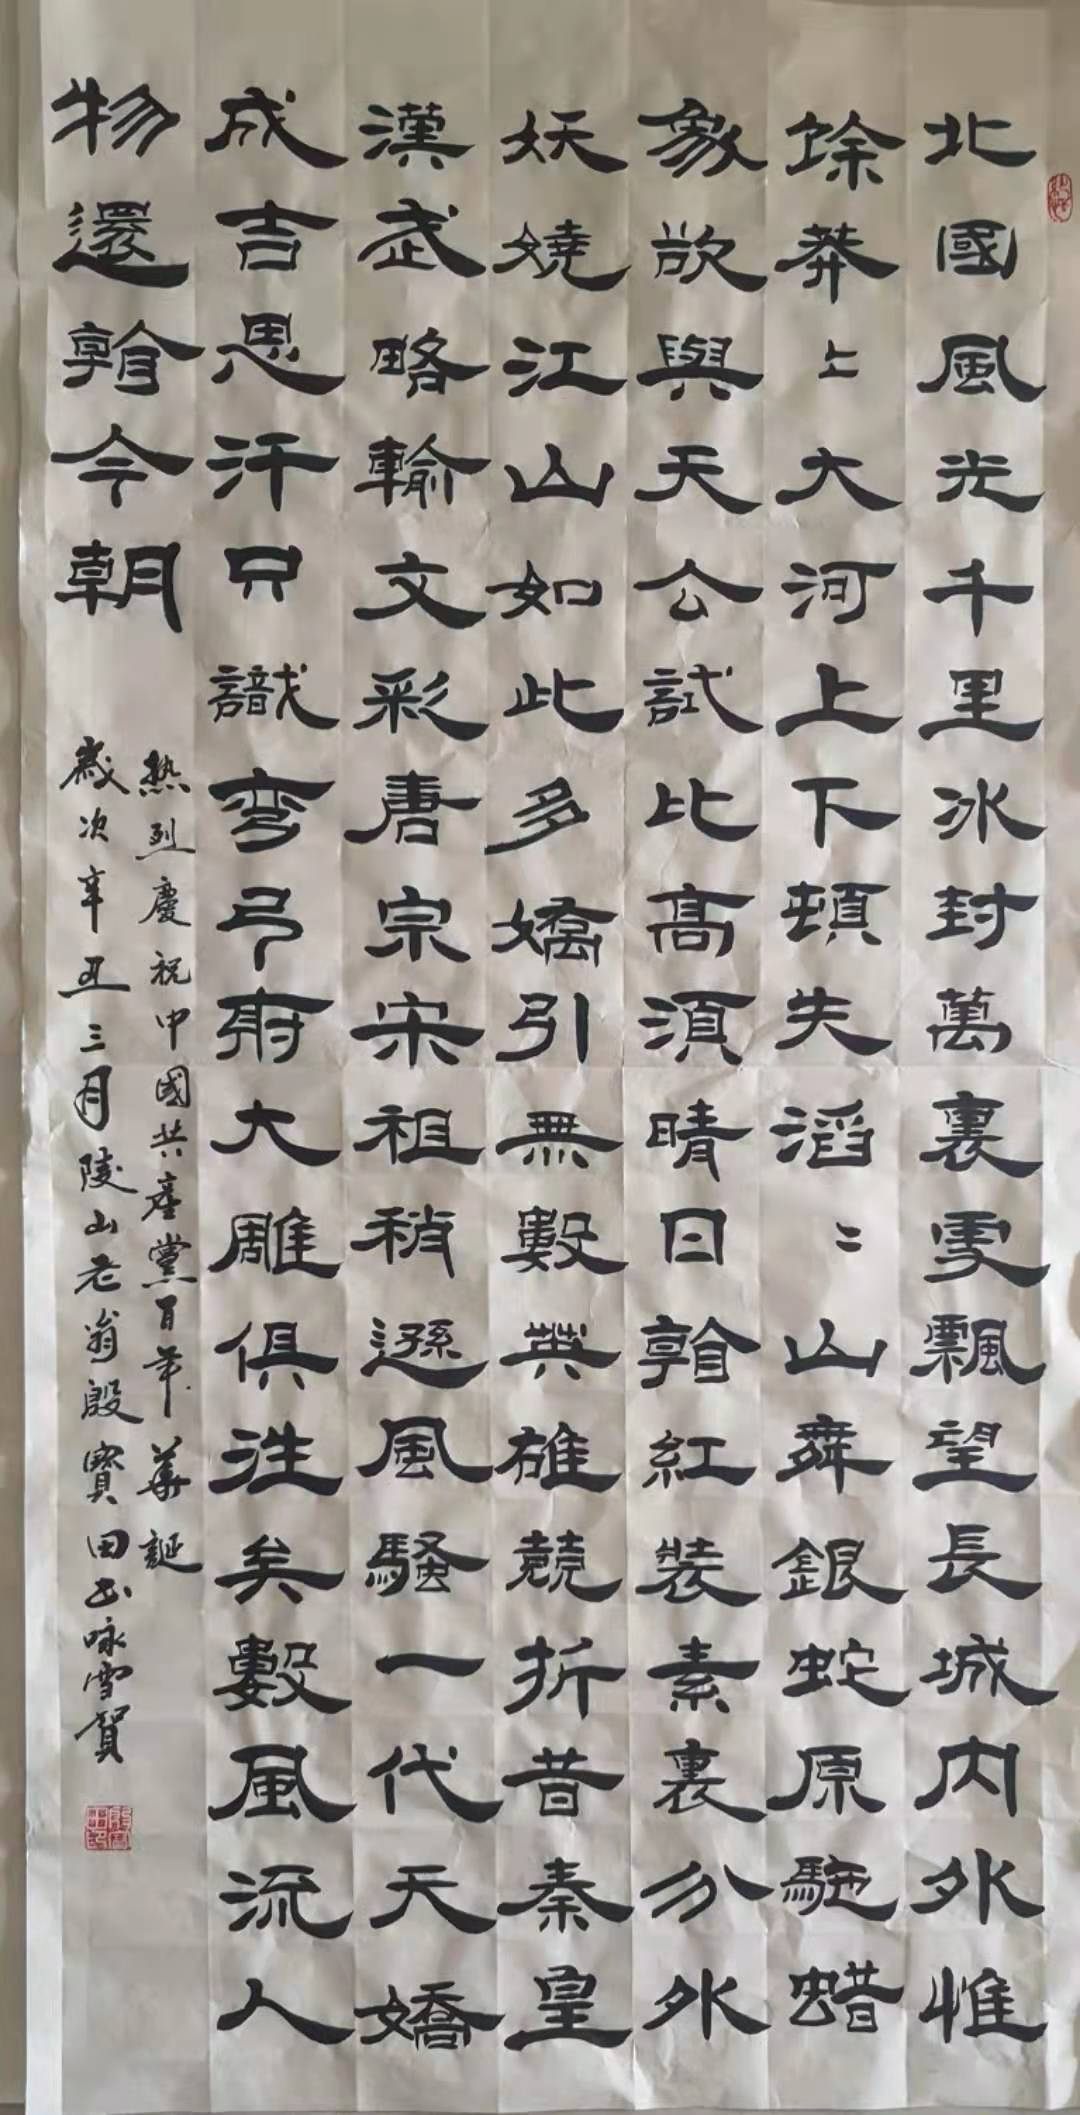 北國風光千里冰封萬裏雪飄望長城內外惟
餘莽〻大河上下頓失滔〻山舞銀蛇原馳蜡
象欲與天公試比高須晴日看紅裝素裏分外
妖嬈江山如此多嬌引無數英雄競折昔秦皇
漢武略輸文彩唐宗宋祖稍遜風騷一代天嬌
成吉思汗只識彎弓射大雕俱往矣數風流人
物還看今朝
热烈慶祝中國共產黨百年華誕
歲次辛丑三月陵山老翁殷寶田书咏雪賀